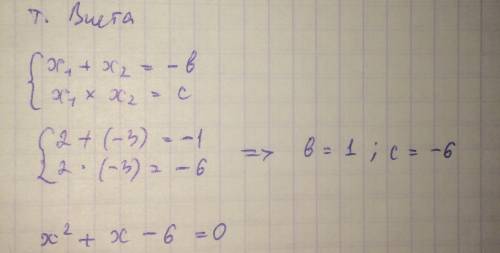 т. Виета
{ x₁ + x₂ = -в
x₁ × x₂ = с
{ 2 + (-3) = -1
2 · (-3) = -6 => в = 1 ; с = -6
x² + x - 6 = 0